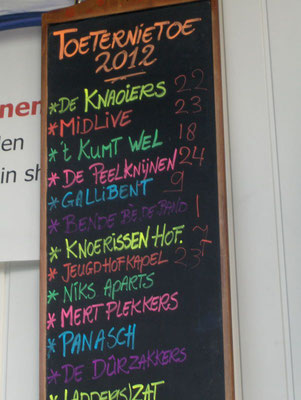 TOETERNIETOE
2012
* DE KNAOIERS 22
* MIDLIVE 23
* 't KUMT WEL 18
* DE PEELKNIJNEN 24
* GALLIBENT 9
* BENDE BÈ DE BAND 1
* KNOERISSEN HOF.
* JEUGDHOFKAPEL 23
* NIKS APARTS
* MERT PLEKKERS
* PANASCH
* DE DÛRZAKKERS
* LADDERS(Z)AT
nen
len
in sh